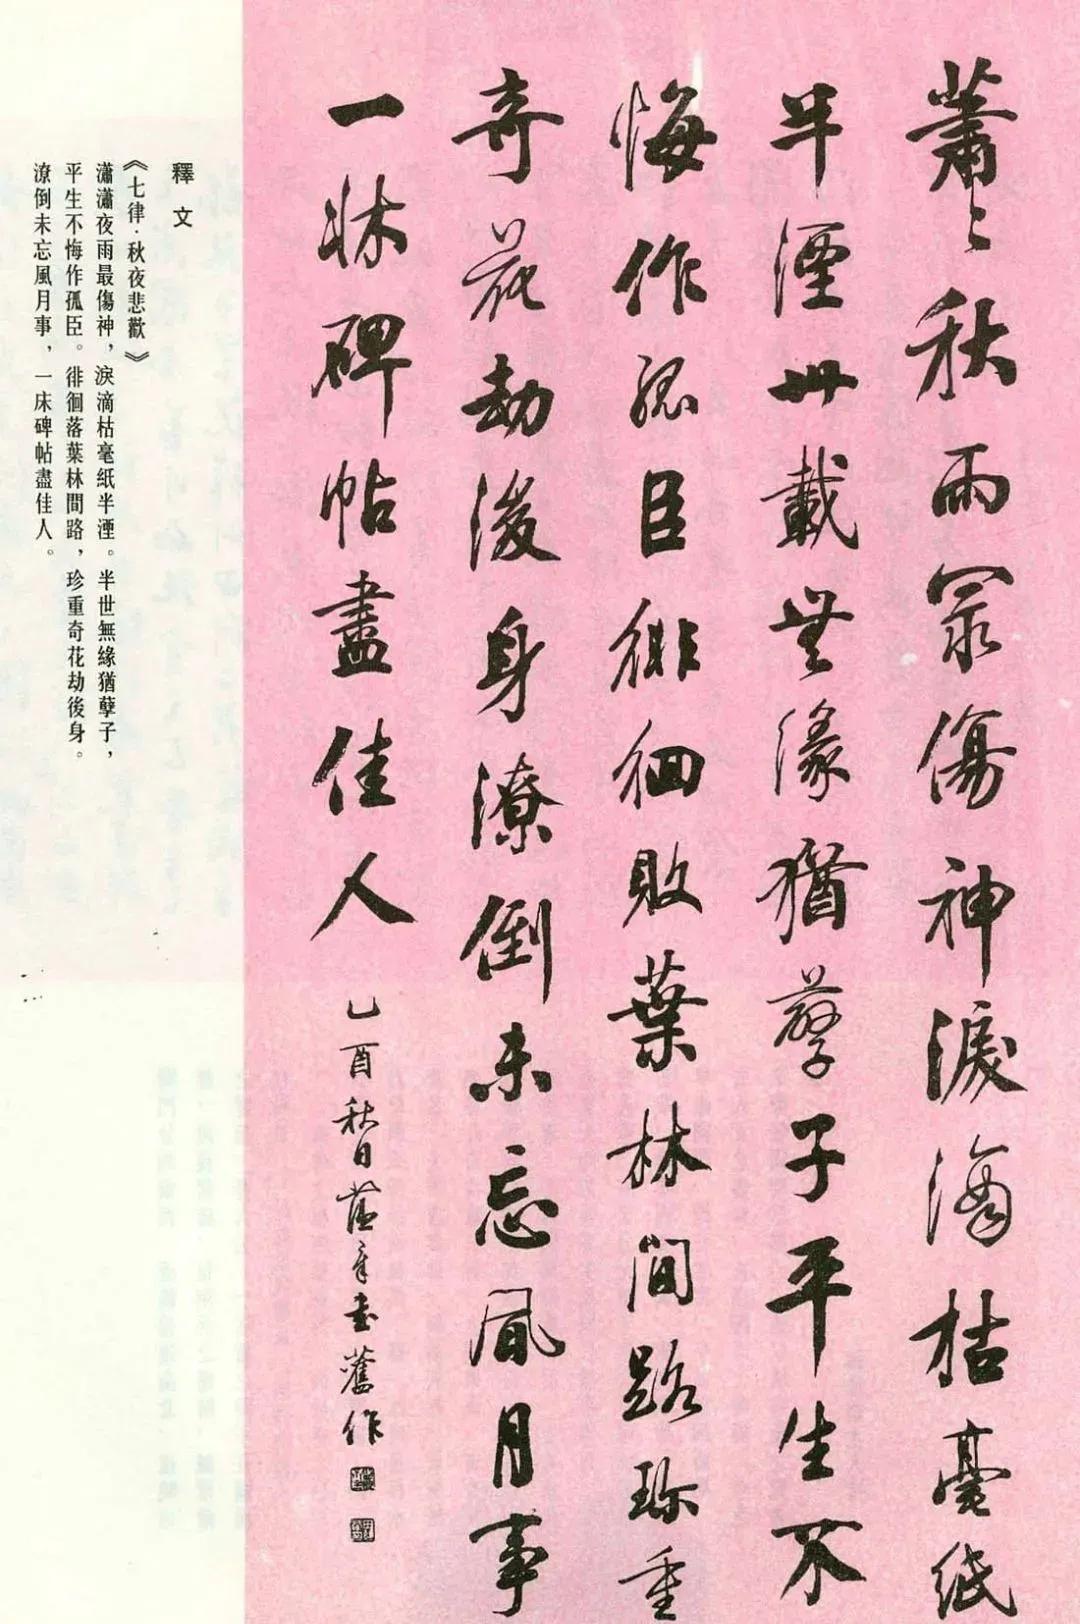 蕭〻秋雨最傷神淚滴枯毫紙
半湮卅載無緣猶孽子平生不
悔作孤臣徘徊敗葉林間路珍重
奇花劫後身潦倒未忘風月事
一牀碑帖盡佳人
乙酉秋日書舊作
釋文
《七律·秋夜悲歡》
瀟瀟夜雨最傷神，淚滴枯毫紙半湮。半世無緣猶孽子，
平生不悔作孤臣。徘徊落葉林間路，珍重奇花劫後身。
潦倒未忘風月事，一床碑帖盡佳人。